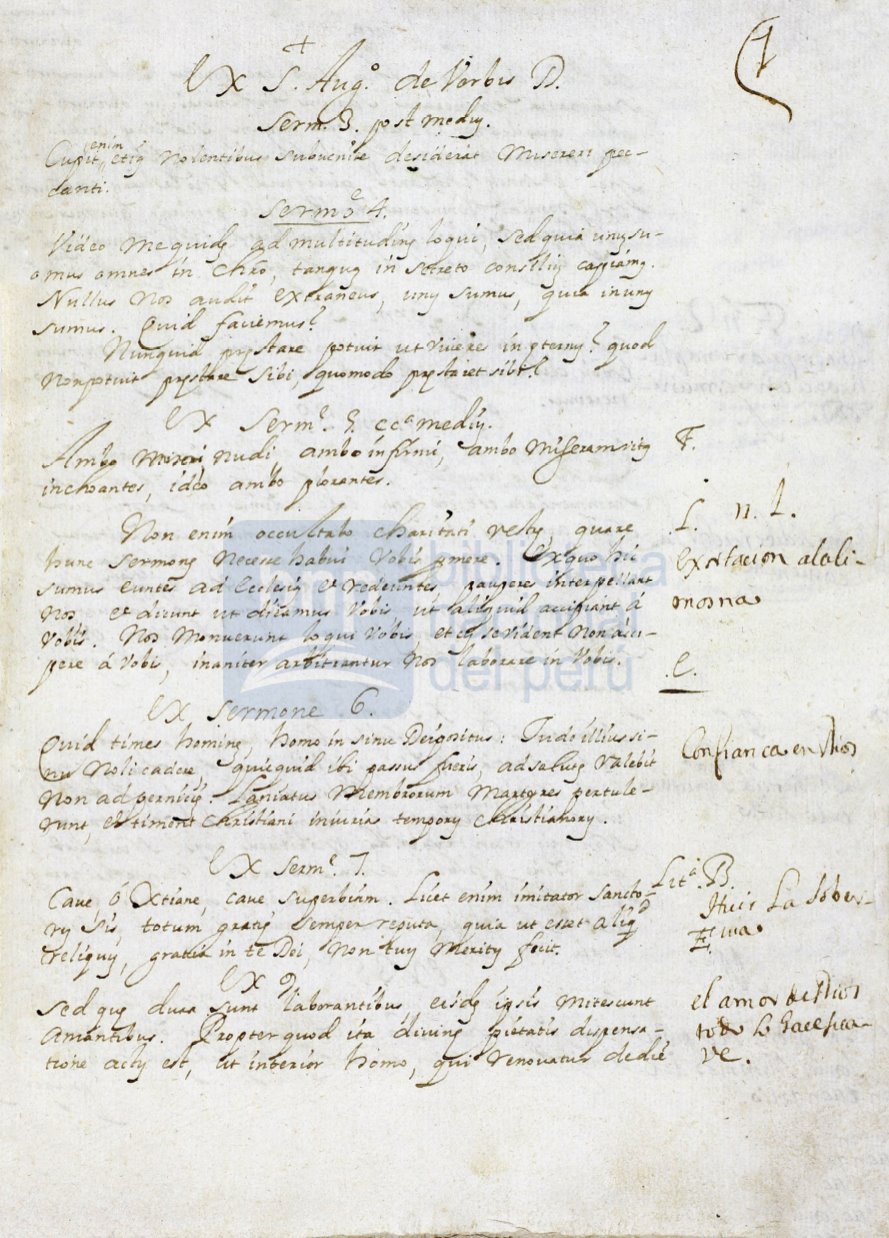 +
Ex S. Augº. de Verbis D.
1
Serm. 3. post mediũ.
Cupit enim, etiã nolentibus subvenire desiderat misereri pec-
canti.
Sermoe 4.
Video me quidẽ ad multitudinẽ loqui, sed quia unũ su-
mus omnes in Chrõ, tanquã in secreto consiliũ capiamꝰ.
Nullus nos audit extraneus, unũ sumus, quia in unũ
sumus. Quid faciemus?
Nunquid prẹstare potuit ut viveres in ẹternũ? quod
non potuit prẹstare sibi, quomodo prẹstaret tibi?
Ex Serm.e 5. ccª mediũ.
Ambo miseri nudi ambo infirmi, ambo miseram vitã
F.
inchoantes, ideo ambo plorantes.
Non enim occultabo charitati vestrẹ, quare
L. n. L.
hunc sermonẽ necesse habui vobis promere. Ex quo hic
Exsitacion a la li-
sumus euntes ad Ecclesiã et redeuntes pauperes interpellant
nos et dicunt ut dicamus vobis ut aliquid accipiant à
mosna
vobis. Nos monuerunt loqui vobis et cũ se vident non acci-
pere á vobis, inaniter arbitrantur nos laborare in vobis.
.C.
Ex Sermone 6.
Quid times hominẽ, homo in sinu Dei positus: Tu de illius si-
Confianca en Dios
nu noli cadere, quicquid ibi passus fueris, ad salutẽ valebit
non ad perniciẽ. Laniatus membrorum Martyres pertule-
runt, et timent Christiani iniurias temporũ Christianorũ.
Ex serm.e 7.
Litª. B.
Cave ó Xtiane, cave superbiam. Licet enim imitator sancto-
Huir La sober-
rũ sis, totum gratiẹ semper reputa, quia ut esset aliqd
via
reliquũ, gratia in te Dei, non tuũ meritũ fecit.
Ex 9.
Sed quẹ dura sunt laborantibus eisdẽ ipsis mitescunt
el amor de Dios
amantibus. Propter quod ita divinẹ pietatis dispensa-
todo Lo hace sua-
tione actũ est, ut interior homo, qui renovatur de die
ve.